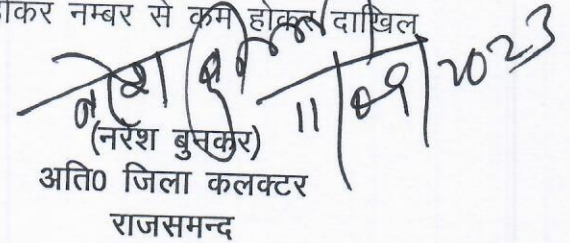 कर नम्बर से कम होकर दाखिल
नरेश बुनकर 11/09/2023
(नरेश बुनकर)
अति0 जिला कलक्टर
राजसमन्द